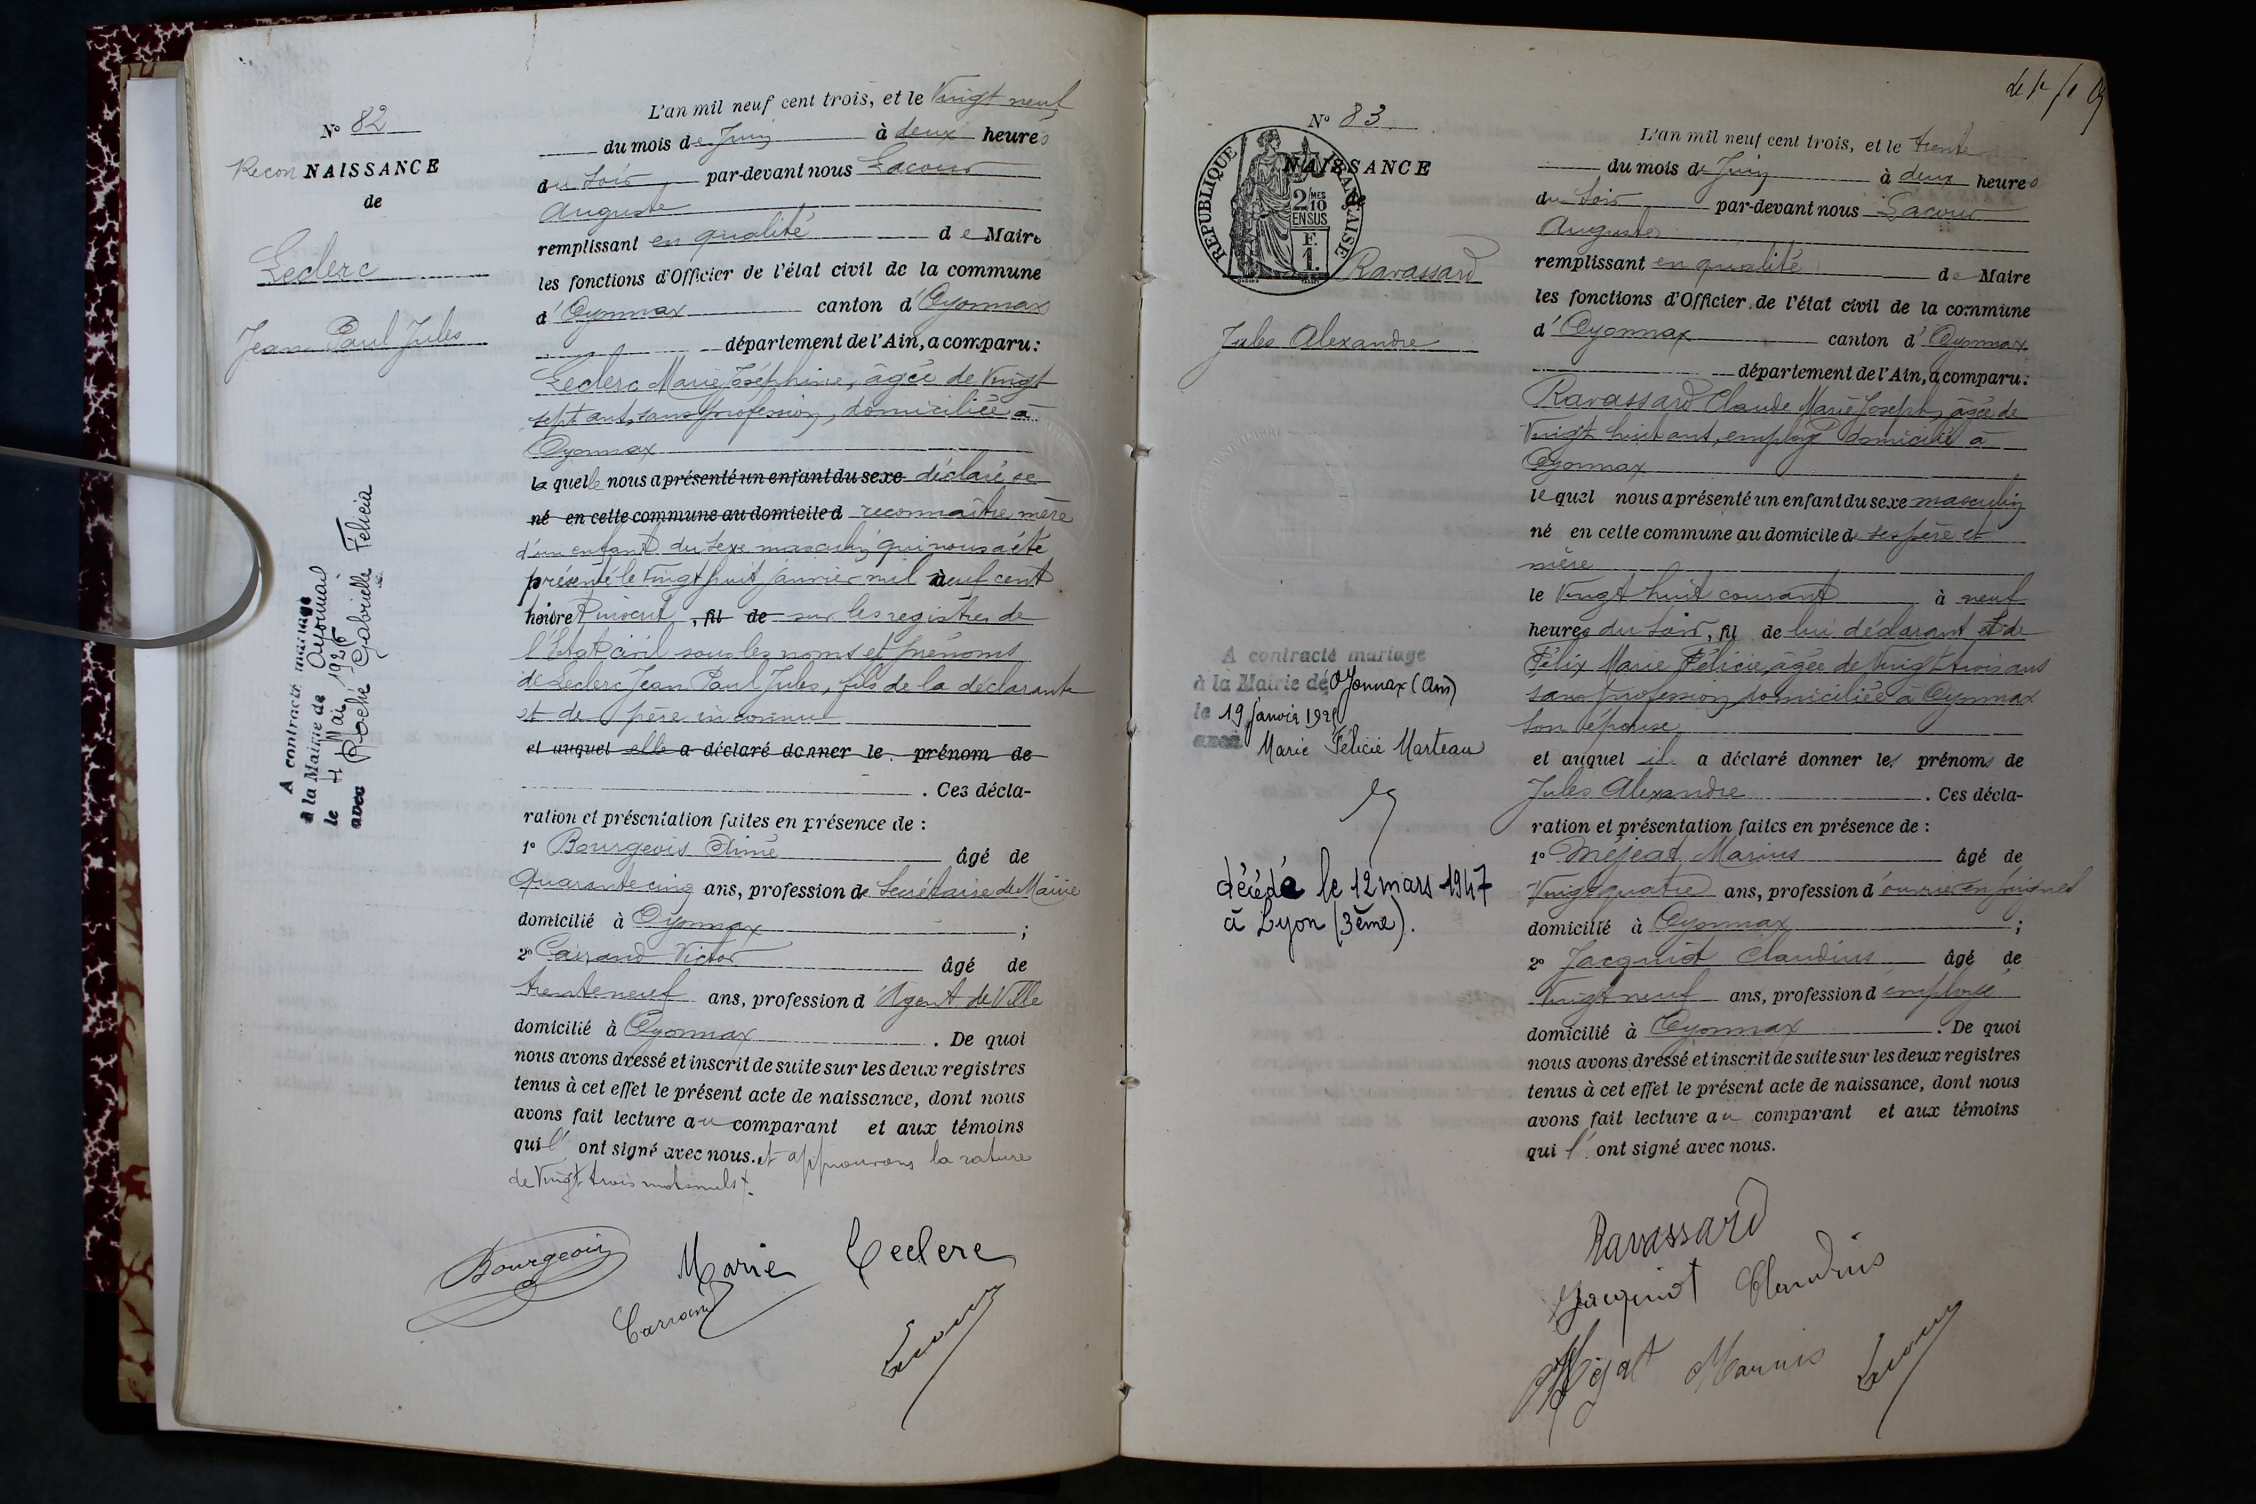 N° 82
Recon NAISSANCE
de
Leclerc
Jean Paul Jules
A contracté mariage
à la Mairie de Oyonnax
le Mai 192
avec Roche Gabrielle Félicia
L'an mil neuf cent trois, et le Vingt neuf
du mois de Juin à deux heures
du soir par-devant nous Lacour
Auguste
remplissant en qualité de Maire
les fonctions d'Officier de l'état civil de la commune
d'Oyonnax canton d'Oyonnax
département de l'Ain, a comparu:
Leclerc Marie Joséphine, âgée de Vingt
sept ans, sans profession, domiciliée à
Oyonnax
laquelle nous a présenté un enfant du sexe déclaré se
né en cette commune au domicile d reconnaître mère
d'un enfant du sexe masculin qui nous a été
présenté le Vingt huit janvier mil neuf cent
, fil de sur les registres de
l'Etat civil sous les noms et prénoms
de Leclerc Jean Paul Jules, fils de la déclarante
et de père inconnu
et auquel elle a déclaré donner le prénom de
. Ces décla-
ration et présentation faites en présence de :
1° Bourgeois Aimé âgé de
Quarante cinq ans, profession de Secrétaire de Mairie
domicilié à Oyonnax ;
2° Carrand Victor âgé de
trente neuf ans, profession d'Agent de Ville
domicilié à Oyonnax . De quoi
nous avons dressé et inscrit de suite sur les deux registres
tenus à cet effet le présent acte de naissance, dont nous
avons fait lecture au comparant et aux témoins
qui l' ont signé avec nous. et approuvons la rature
de Vingt trois mots nuls
Bourgeois Marie Leclerc
Carrand
Lacour
N° 83
RÉPUBLIQUE FRANÇAISE
2/10MES
EN SUS
F.
1.
NAISSANCE
de
Ravassard
Jules Alexandre
A contracté mariage
à la Mairie de Oyonnax (Ain)
le 19 Janvier 192
avec
Marie Félicie Marteau
décédé le 12 mars 1947
à Lyon (3ème).
L'an mil neuf cent trois, et le trente
du mois de Juin à deux heures
du soir par-devant nous Lacour
Auguste
remplissant en qualité de Maire
les fonctions d'Officier de l'état civil de la commune
d'Oyonnax canton d'Oyonnax
département de l'Ain, a comparu:
Ravassard Claude Marie Joseph, âgé de
Vingt huit ans, employé domicilié à
Oyonnax
lequel nous a présenté un enfant du sexe masculin
né en cette commune au domicile de ses père et
mère
le Vingt huit courant à neuf
heures du soir, fil de lui déclarant et de
Félix Marie Félicie, âgée de Vingt trois ans
sans profession domiciliée à Oyonnax
son épouse
et auquel il a déclaré donner les prénoms de
Jules Alexandre . Ces décla-
ration et présentation faites en présence de :
1° Méjeat Marius âgé de
Vingt quatre ans, profession d'ouvrier en peignes
domicilié à Oyonnax ;
2° Jacquiot Claudius âgé de
Vingt neuf ans, profession d'employé
domicilié à Oyonnax . De quoi
nous avons dressé et inscrit de suite sur les deux registres
tenus à cet effet le présent acte de naissance, dont nous
avons fait lecture au comparant et aux témoins
qui l' ont signé avec nous.
Ravassard
Jacquiot Claudius
Méjat Marius Lacour